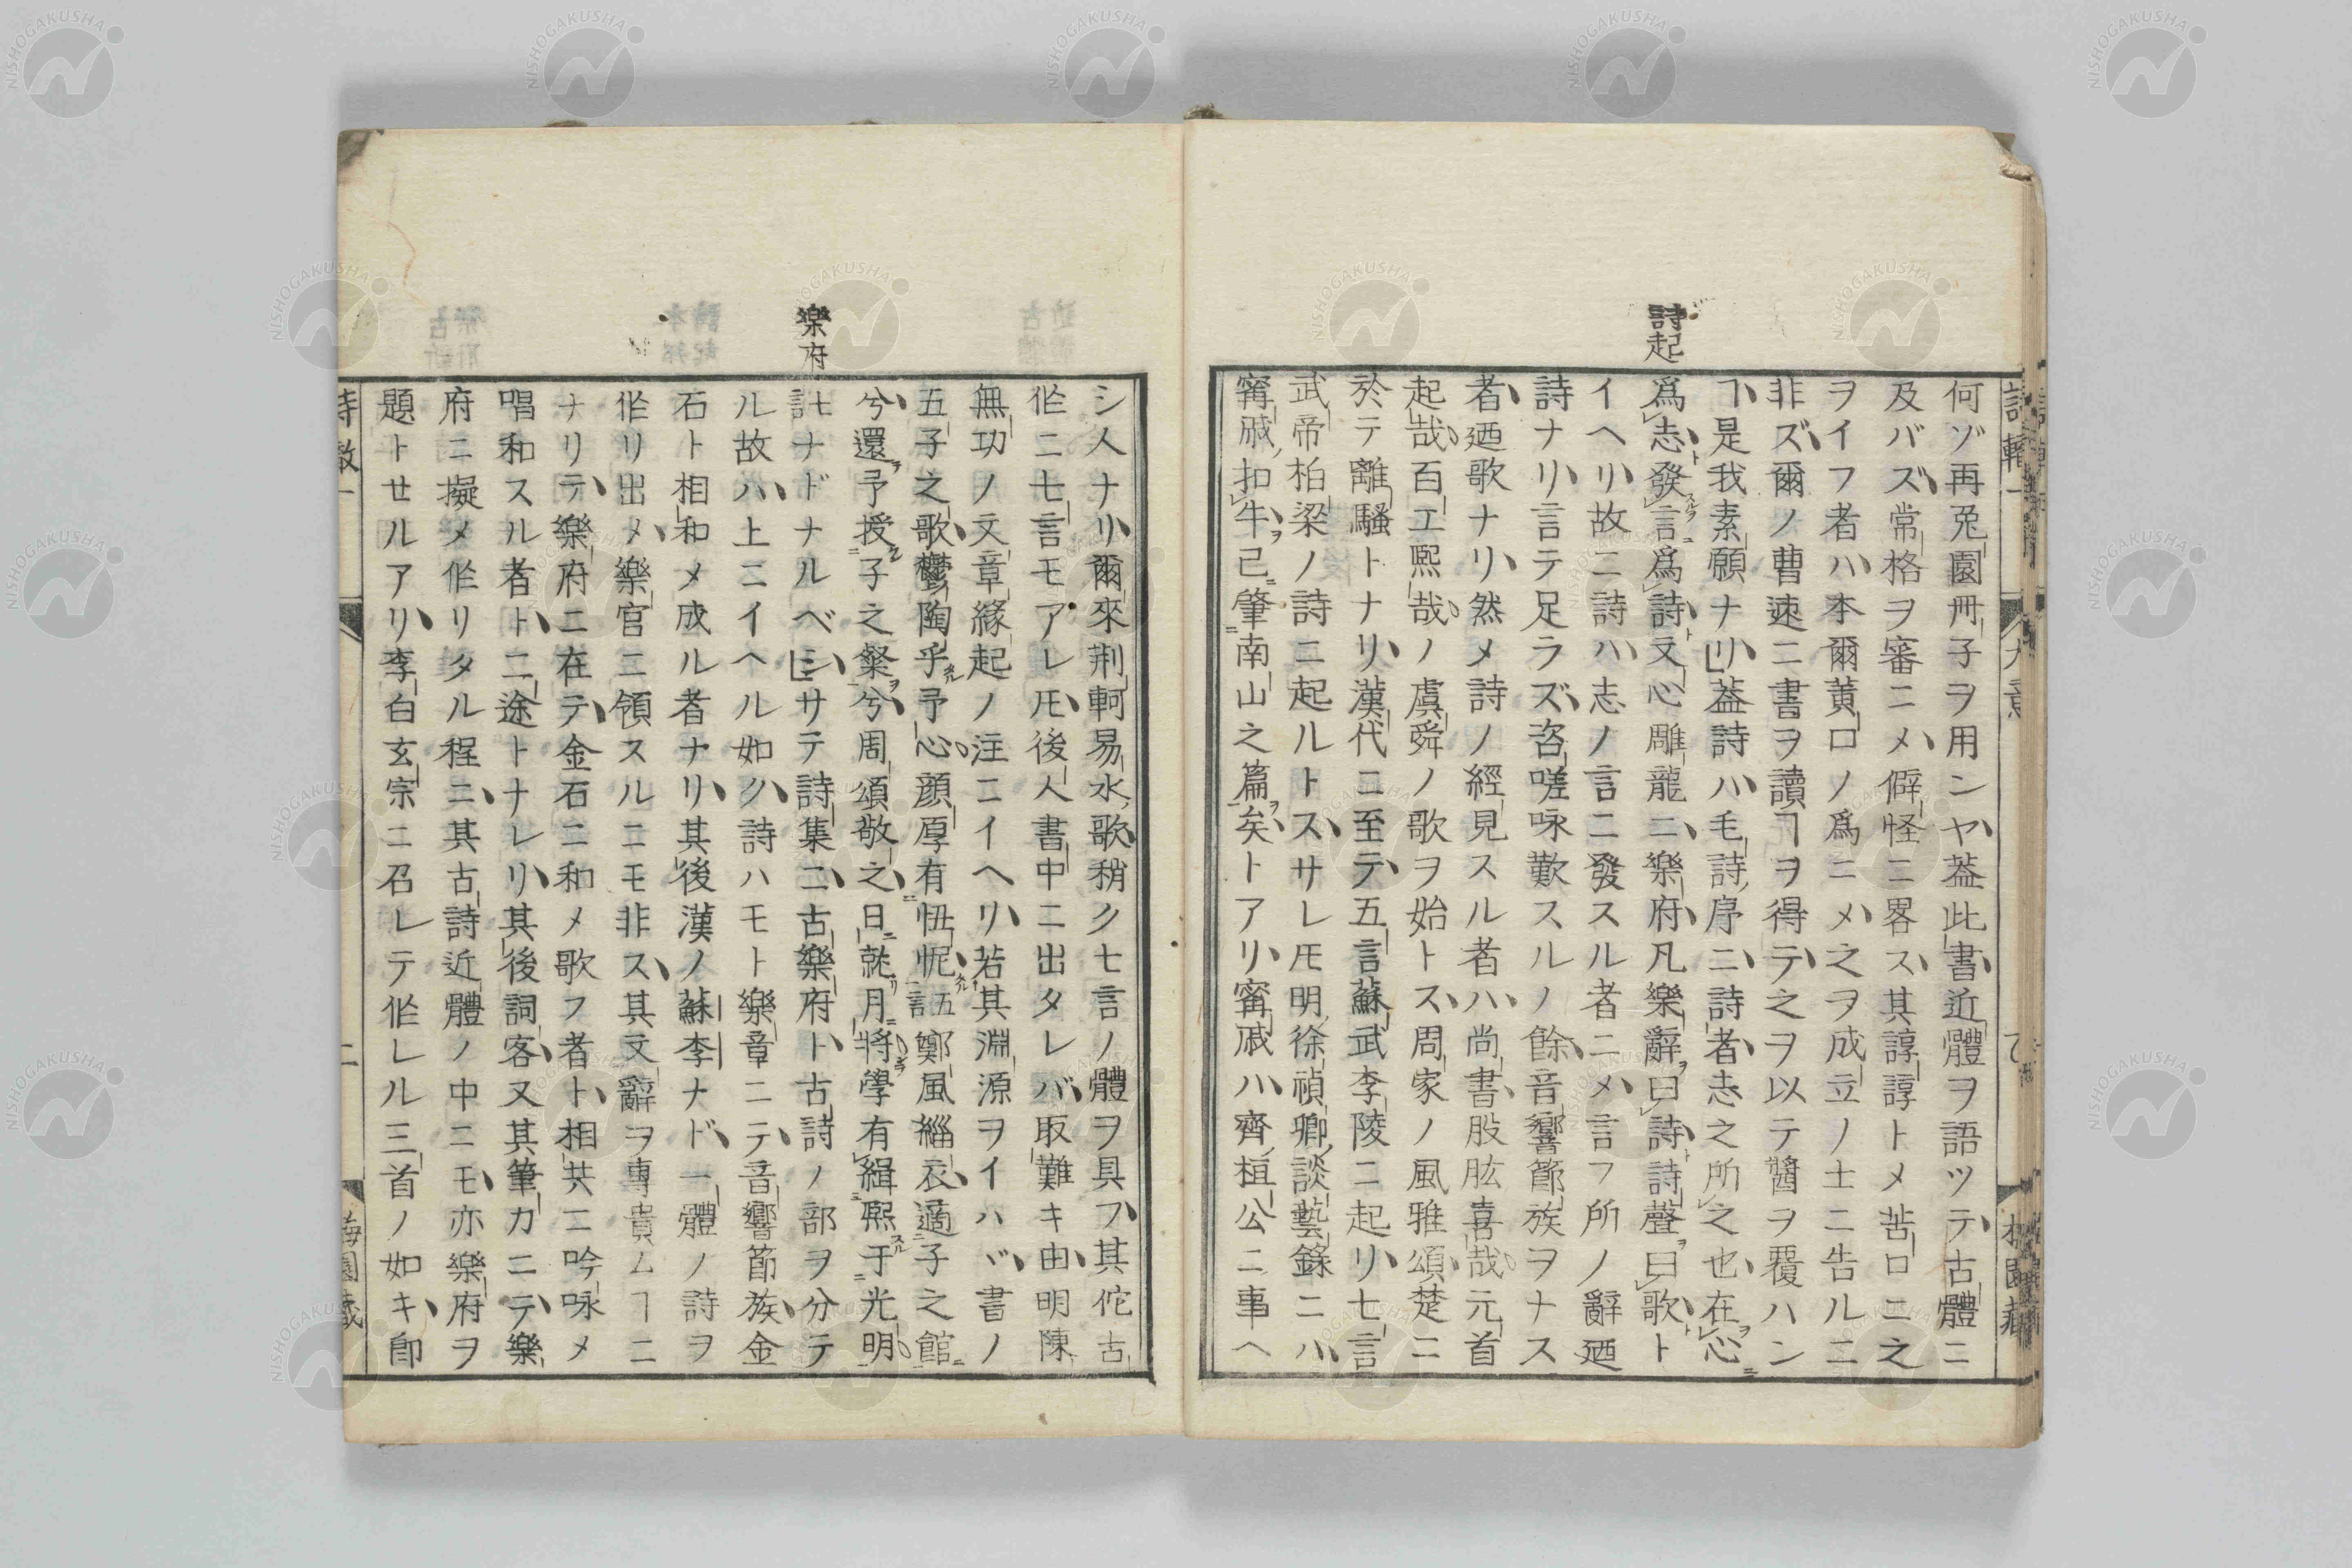 詩起
何ゾ再兎園冊子ヲ用ンヤ、葢此書、近體ヲ語ツテ、古體ニ
及バズ、常格ヲ審ニメ、僻怪ニ畧ス、其諄諄トメ苦口ニ之
ヲイフ者ハ、本爾黄口ノ爲ニメ、之ヲ成立ノ士ニ告ルニ
非ズ、爾ノ曹速ニ書ヲ讀ヿヲ得テ、之ヲ以テ醬ヲ覆ハン
ヿ、是我素願ナリ、葢詩ハ毛詩序ニ、詩者、志之所之也、在心
爲志、發言爲詩、又心雕龍ニ、樂府、凡樂辭曰詩、詩聲曰歌、ト
イヘリ、故ニ詩ハ、志ノ言ニ發スル者ニメ、言フ所ノ辭廼
詩ナリ、言テ足ラズ、咨嗟咏歎スルノ餘、音響節族ヲナス
者、廼歌ナリ、然メ詩ノ經見スル者ハ、尚書、股肱喜哉、元首
起哉、百工熙哉ノ虞舜ノ歌ヲ始トス、周家ノ風雅頌、楚ニ
於テ離騷トナリ、漢代ニ至テ、五言蘇武李陵ニ起リ、七言
武帝柏梁ノ詩ニ起ルトス、サレ𪜈明徐禎卿、談藝錄ニハ、
甯戚扣牛、已肇南山之篇矣、トアリ、甯戚ハ齊桓公ニ事ヘ
樂府
シ人ナリ、爾來荆軻易水歌、稍ク七言ノ體ヲ具フ、其佗古
作ニ七言モアレ𪜈、後人書中ニ出タレバ、取難キ由、明陳
無功ノ文章緣起ノ注ニイヘリ、若其淵源ヲイハヾ、書ノ
五子之歌、鬱陶乎予心、顔厚有忸怩、詩鄭風緇衣、適子之館
兮、還予授子之粲兮、周頌敬之、日就月將、學有緝熙于光明
ナドナルベシ、サテ詩集ニ、古樂府ト、古詩ノ部ヲ分テ
ル故ハ、上ニイヘル如ク、詩ハモト樂章ニテ、音響節族、金
石ト相和メ成ル者ナリ、其後漢ノ蘇李ナド、一體ノ詩ヲ
作リ出メ、樂官ニ領スルニモ非ス、其文辭ヲ專貴ムヿニ
ナリテ、樂府ニ在テ、金石ニ和メ歌フ者ト、相共ニ吟咏メ
唱和スル者ト、二途トナレリ、其後詞客、又其筆力ニテ、樂
府ニ擬メ作リタル程ニ、其古詩近體ノ中ニモ、亦樂府ヲ
題トせルアリ、李白玄宗ニ召レテ作レル三首ノ如キ、卽
二